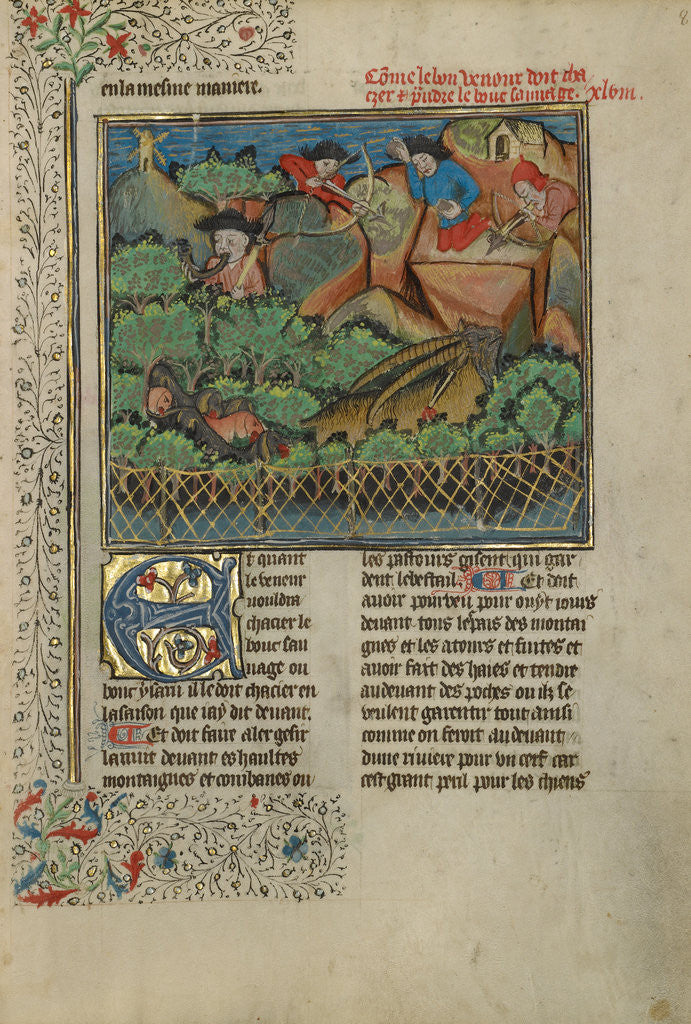 en la mesme maniere.
Cõme le bon veneur doit cha
cer et p̃ndre le bouc sauvage. xlvııı.
Et quant
le veneur
vouldra
chacier le
bouc sau
uage ou
bouc ysain il le doit chacier en
la saison que iay dit deuant.
Et doit faire aler gesir
la nuit deuant es haultes
montaignes et combanes ou
les pastours gisent qui gar
dent le bestail. Et doit
auoir pourveu pour ouyt iours
deuant tous les pais des montai
gnes et les atours et fuites et
auoir fait des haies et tendre
au deuant des roches ou ilz se
veulent garentir tout ainsi
comme on feroit au deuant
dune riuiere pour vn cerf car
cest grant peril pour les chiens